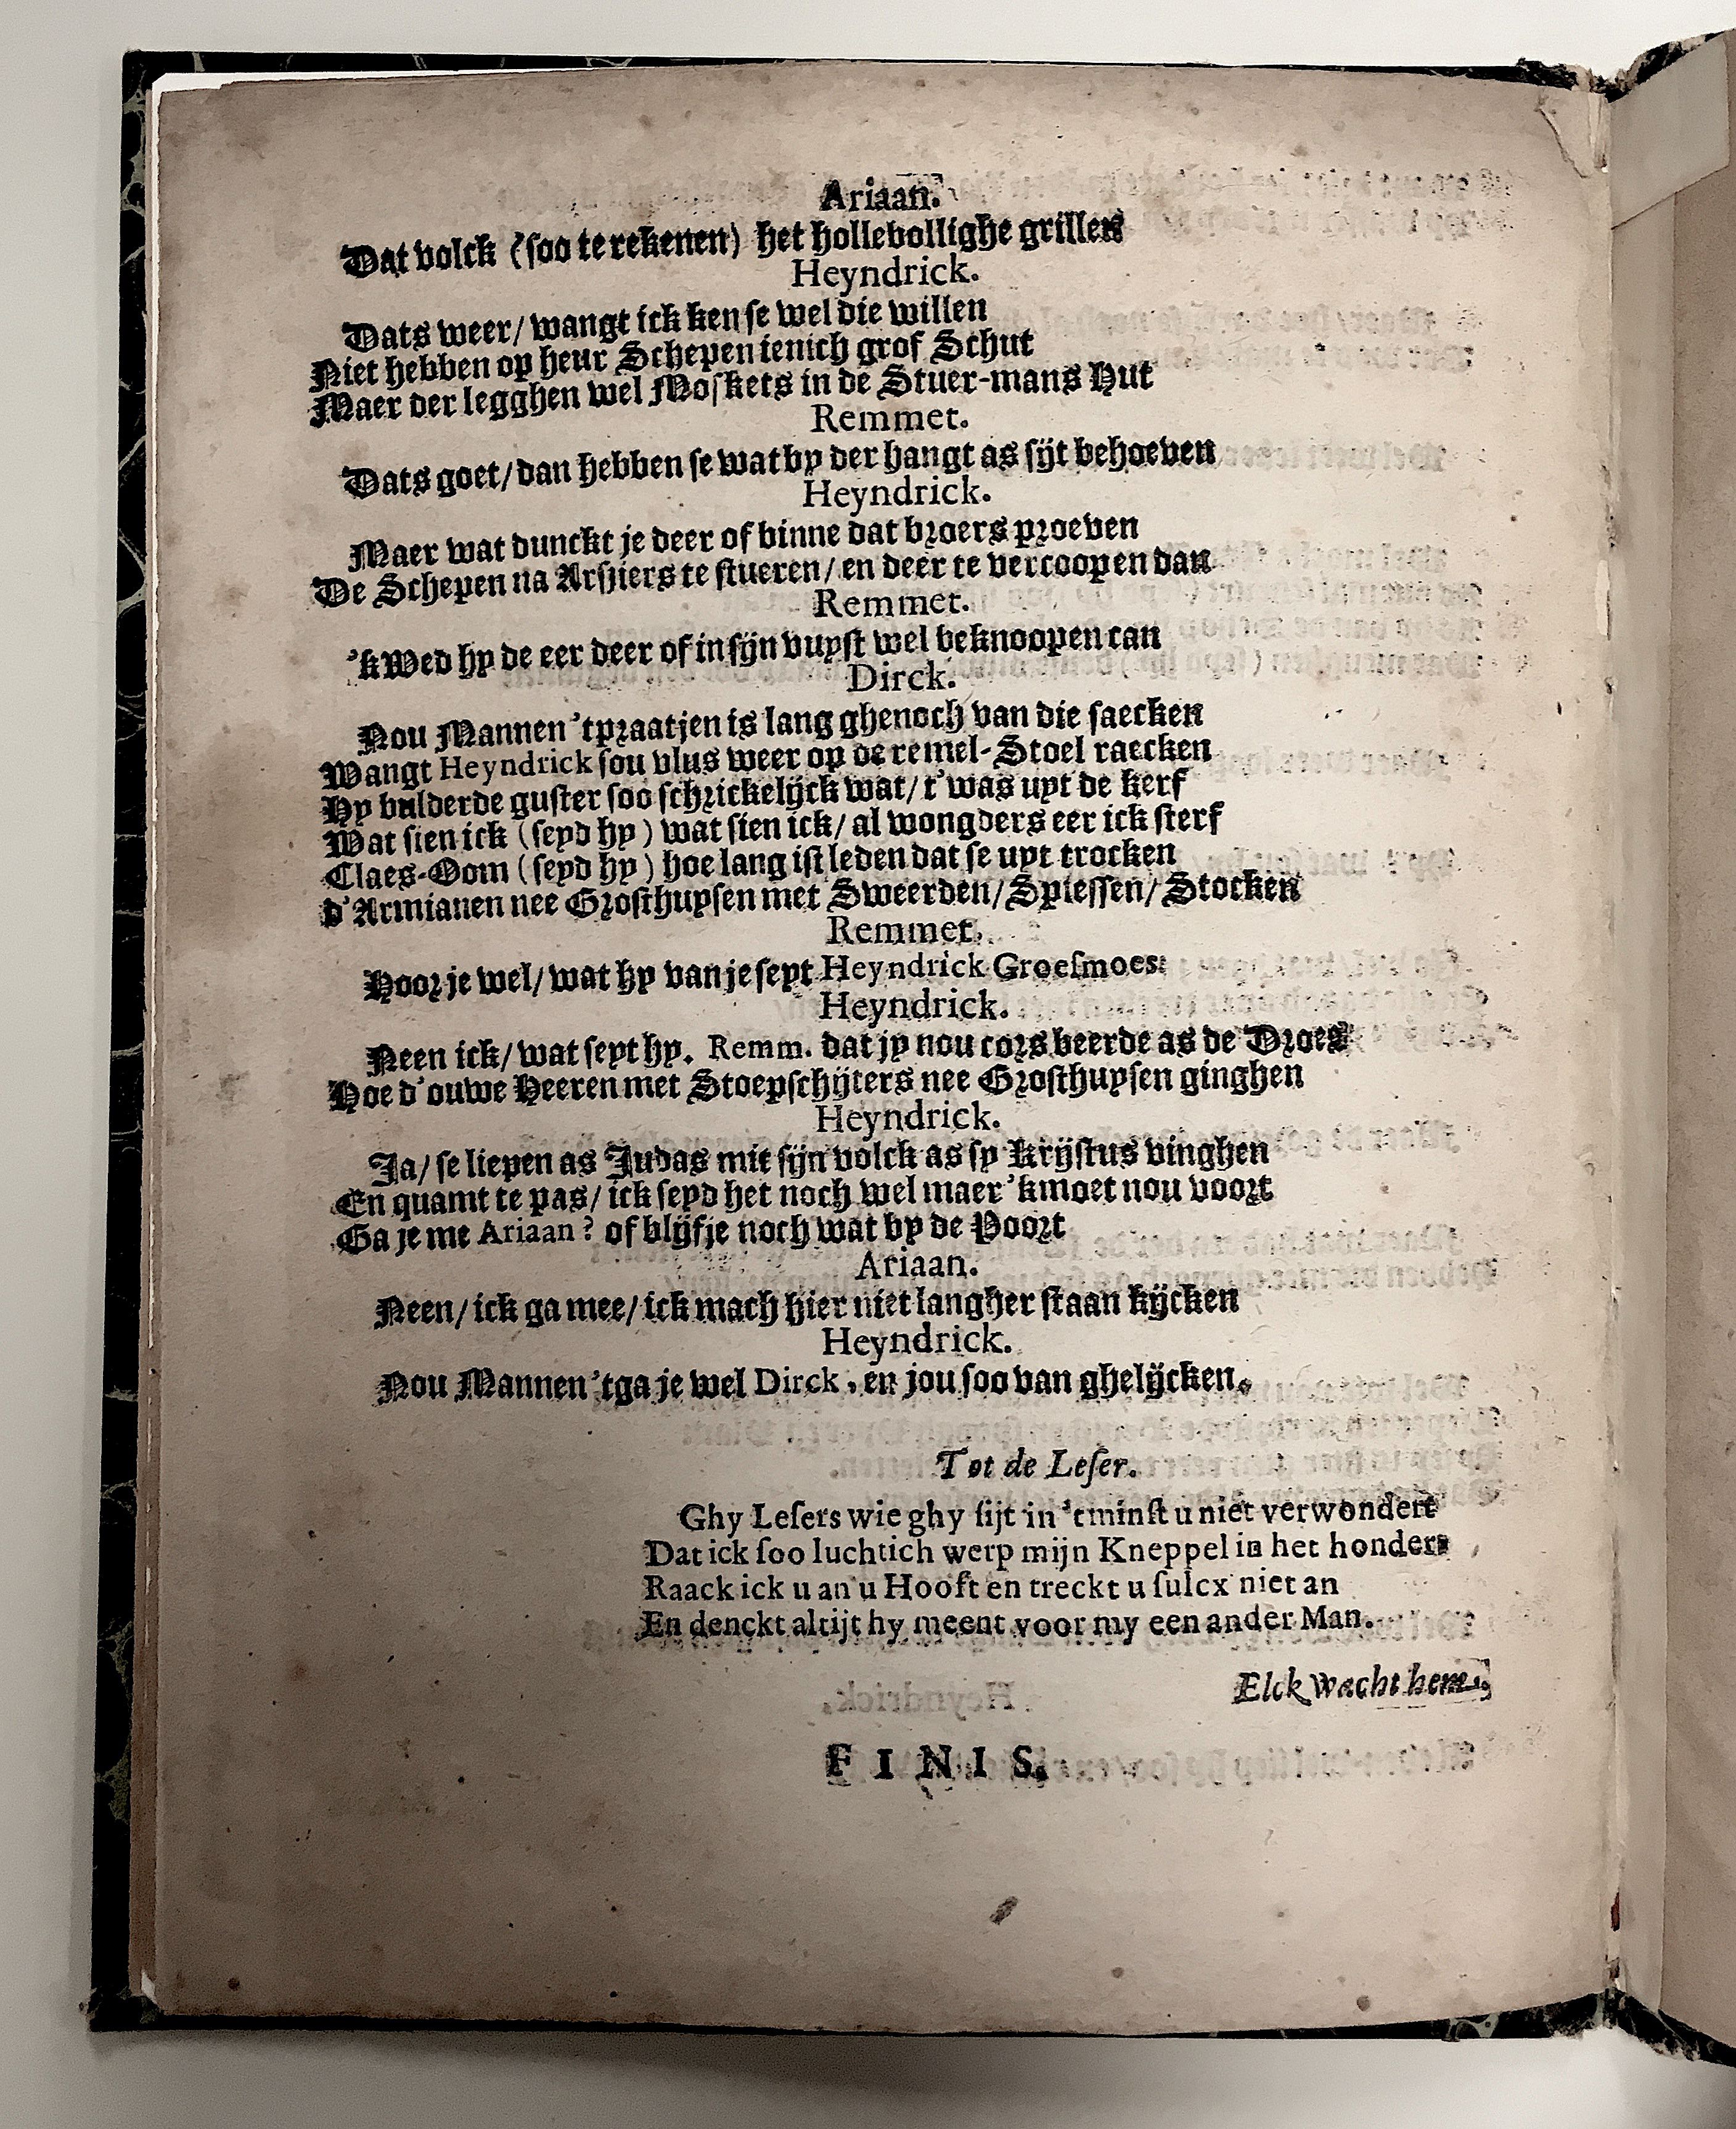 Ariaan.
Dat volck (soo te rekenen) het hollebollighe grillen
Heyndrick.
Dats weer/ wangt ick ken se wel die willen
Niet hebben op heur Schepen ienich grof Schut
Maer der legghen wel Moskets in de Stuer-mans Hut
Remmet.
Dats goet/ dan hebben se wat by der hangt as sijt behoeven
Heyndrick.
Maer wat dunckt je deer of binne dat broers proeven
De Schepen na Arsiers te stueren/ en deer te vercoopen dan
Remmet.
'k Wed hy de eer deer of in sijn vuyst wel beknoopen can
Dirck.
Nou Mannen 'tpraatjen is lang ghenoch van die saecken
Wangt Heyndrick sou vlus weer op de remel-Stoel raecken
Hy bulderde guster soo schrickelijck wat/ t'was uyt de kerf
Wat sien ick (seyd hy) wat sien ick/ al wongders eer ick sterf
Claes-Oom (seyd hy) hoe lang ist leden dat se uyt trocken
d'Armianen nee Grosthuysen met Sweerden/ Spiessen/ Stocken
Remmet.
Hoor je wel/ wat hy van je seyt Heyndrick Groesmoes:
Heyndrick.
Neen ick/ wat seyt hy. Remm. dat jy nou cors beerde as de Droes
Hoe d'ouwe Heeren met Stoepschijters nee Grosthuysen ginghen
Heyndrick.
Ja/ se liepen as Judas mit sijn volck as sy Krijstus vinghen
En quamt te pas/ ick seyd het noch wel maer 'kmoet nou voort
Ga je me Ariaan? of blijf je noch wat by de Poort
Ariaan.
Neen/ ick ga mee/ ick mach hier niet langher staan kijcken
Heyndrick.
Nou Mannen 'tga je wel Dirck, en jou soo van ghelijcken.
Tot de Leser.
Ghy Lesers wie ghy sijt in 'tminst u niet verwondert
Dat ick soo luchtich werp mijn Kneppel in het hondert
Raack ick u an u Hooft en treckt u sulcx niet an
En denckt altijt hy meent voor my een ander Man.
Elck wacht hem.
FINIS.